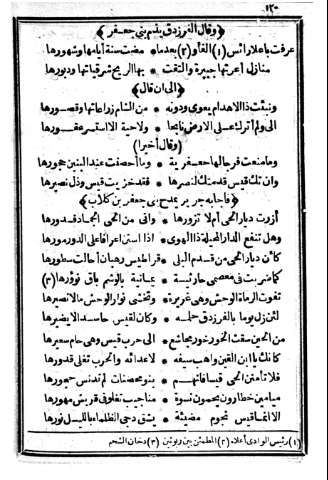 ١٢٠
﴿وقال الفرزدق يذم بني جعفر﴾
عرفت باعلى رائس (١) الفأو (٢) بعدما • مضت سنة أيامها وشهورها
منازل أعرتها جبيرة والتقت • بها الريح شرقياتها ودبورها
﴿الى ان قال﴾
ونبئت ذا الاهدام يعوى ودونه • من الشام زراعاتها وقصورها
الى ولم أترك على الارض نابحا • ولا حية الا استسر عقورها
(وقال أخيرا)
وما منعت فرجا لها جعفرية • وما أحصنت عند البنين حجورها
وان تك قيس قدمتك لنصرها • فقد خزيت قيس وذل نصيرها
﴿فاجابه جرير يمدح بني جعفر بن كلاب﴾
أزرت ديار الحي أم لا تزورها • وانى من الحي الجماد فدورها
وهل تنفع الدار المحيلة ذا الهوى • اذا استن اعرافا على الدور مورها
كأن ديار الحي من قدم البلى • قراطيس رهبان أحالت سطورها
كما ضربت في معصمي حارثية • يمانية بالوشم باق نؤورها (٣)
تفوت الرماة الوحش وهي غريرة • وتخشى نوار الوحش ما لا تضيرها
لئن زل يوما بالفرزدق حلمه • وكان لقيس حاسدا لا يضيرها
من الحين سقت الخور خور مجاشع • الى حرب قيس وهي حام سعيرها
كأنك يا ابن القين واهب سيفه • لاعدائه والحرب تغلى قدورها
فلا تأمنن الحي قيسا فانهم • بنو محصنات لم تدنس حجورها
ميامين خطارون يحمون نسوة • مناجيب تغلو في قريش مهورها
الا انما قيس نجوم مضيئة • يشق دجى الظلماء بالليل نورها
(١) رئيس الوادى أعلاه (٢) المطمئن بين ربوتين (٣) دخان الشحم